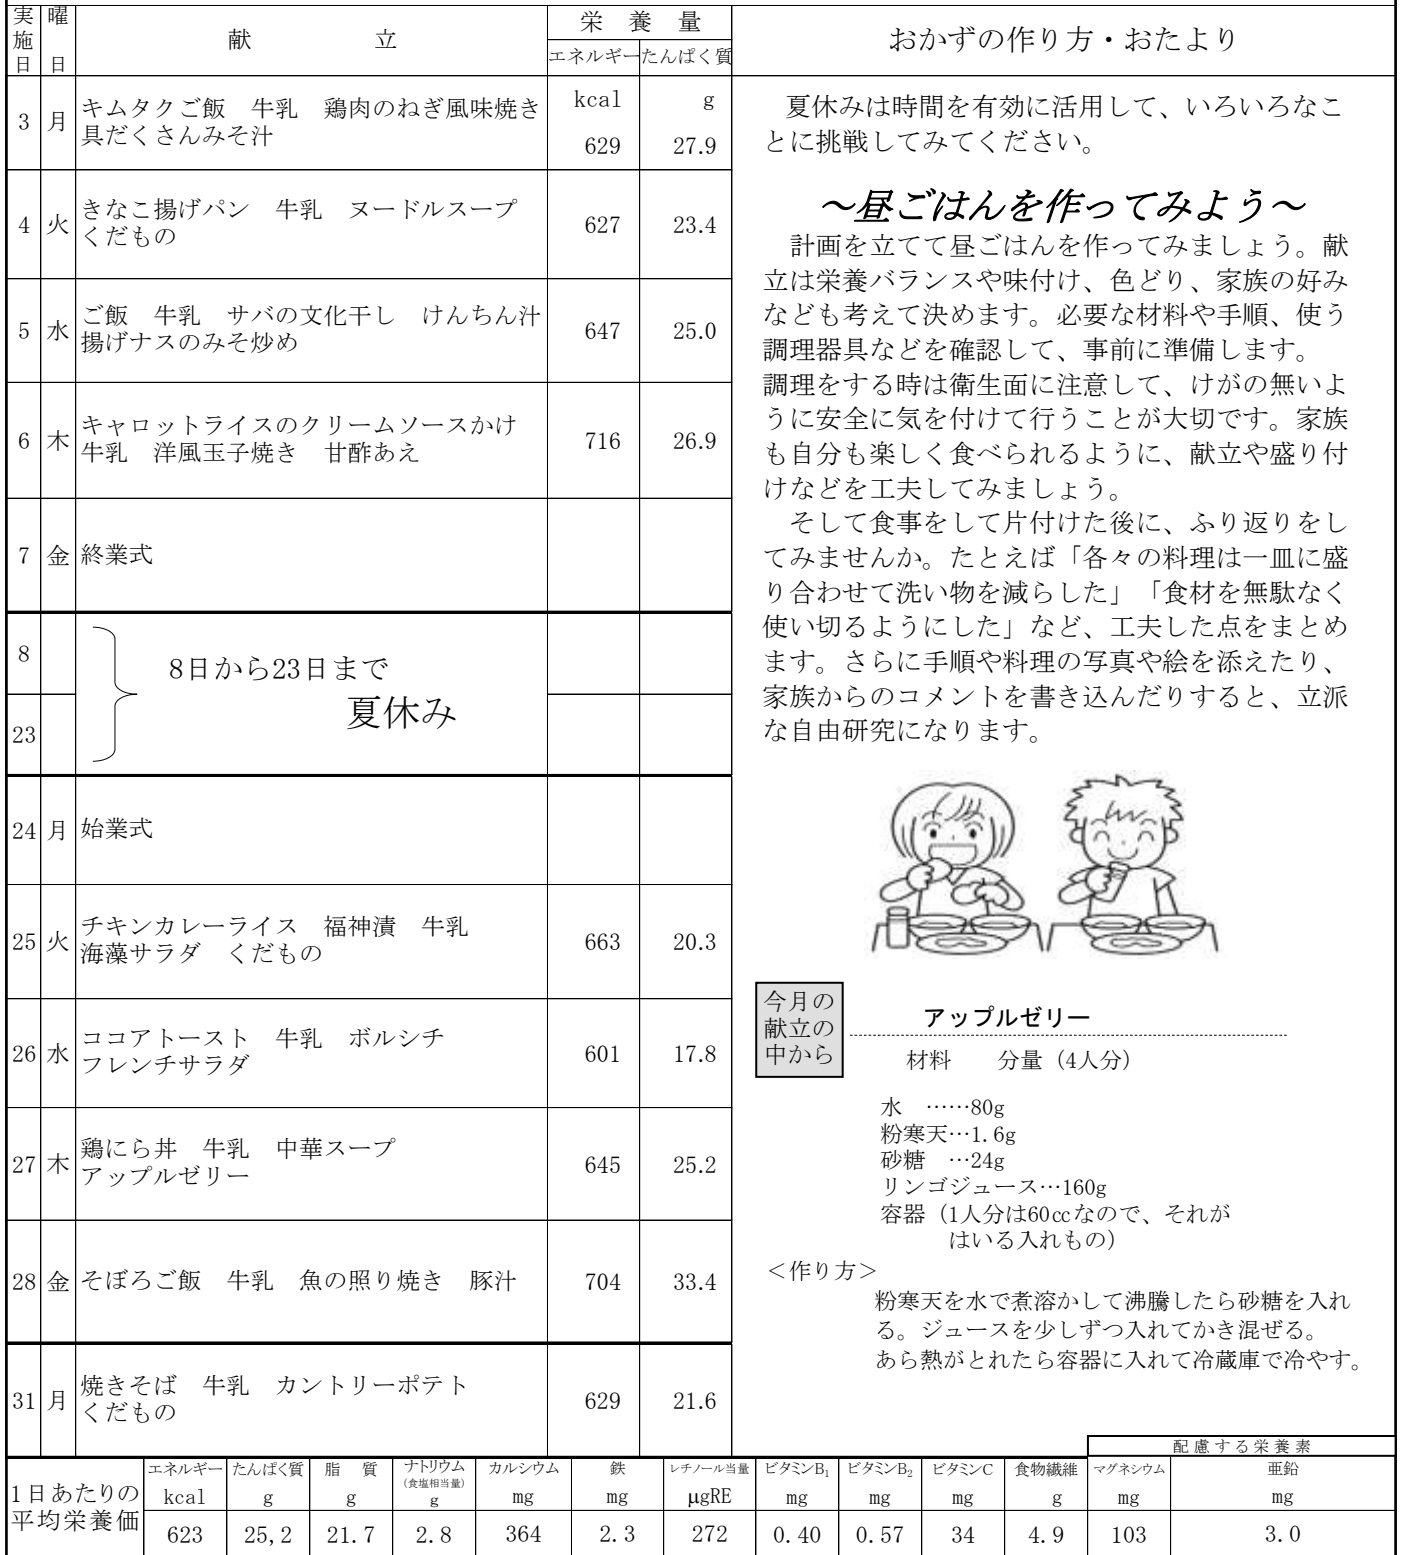 実施日 曜日 献　　　立 栄 養 量 おかずの作り方・おたより
エネルギー たんぱく質
3 月 キムタクご飯　牛乳　鶏肉のねぎ風味焼き kcal g
具だくさんみそ汁 629 27.9
4 火 きなこ揚げパン　牛乳　ヌードルスープ 627 23.4
くだもの
5 水 ご飯　牛乳　サバの文化干し　けんちん汁 647 25.0
揚げナスのみそ炒め
6 木 キャロットライスのクリームソースかけ 716 26.9
牛乳　洋風玉子焼き　甘酢あえ
7 金 終業式
8
8日から23日まで
夏休み
23
24 月 始業式
25 火 チキンカレーライス　福神漬　牛乳 663 20.3
海藻サラダ　くだもの
26 水 ココアトースト　牛乳　ボルシチ 601 17.8
フレンチサラダ
27 木 鶏にら丼　牛乳　中華スープ 645 25.2
アップルゼリー
28 金 そぼろご飯　牛乳　魚の照り焼き　豚汁 704 33.4
31 月 焼きそば　牛乳　カントリーポテト 629 21.6
くだもの
夏休みは時間を有効に活用して、いろいろなこ
とに挑戦してみてください。
～昼ごはんを作ってみよう～
計画を立てて昼ごはんを作ってみましょう。献
立は栄養バランスや味付け、色どり、家族の好み
なども考えて決めます。必要な材料や手順、使う
調理器具などを確認して、事前に準備します。
調理をする時は衛生面に注意して、けがの無いよ
うに安全に気を付けて行うことが大切です。家族
も自分も楽しく食べられるように、献立や盛り付
けなどを工夫してみましょう。
そして食事をして片付けた後に、ふり返りをし
てみませんか。たとえば「各々の料理は一皿に盛
り合わせて洗い物を減らした」「食材を無駄なく
使い切るようにした」など、工夫した点をまとめ
ます。さらに手順や料理の写真や絵を添えたり、
家族からのコメントを書き込んだりすると、立派
な自由研究になります。
今月の
献立の
中から
アップルゼリー
材料　　分量（4人分）
水　……80g
粉寒天…1.6g
砂糖　…24g
リンゴジュース…160g
容器（1人分は60㏄なので、それが
はいる入れもの）
＜作り方＞
粉寒天を水で煮溶かして沸騰したら砂糖を入れ
る。ジュースを少しずつ入れてかき混ぜる。
あら熱がとれたら容器に入れて冷蔵庫で冷やす。
配慮する栄養素
1日あたりの
平均栄養価
エネルギー たんぱく質 脂　質 ナトリウム カルシウム 鉄 レチノール当量 ビタミンB₁ ビタミンB₂ ビタミンC 食物繊維 マグネシウム 亜鉛
(食塩相当量)
kcal g g g mg mg μgRE mg mg mg g mg mg
623 25,2 21.7 2.8 364 2.3 272 0.40 0.57 34 4.9 103 3.0